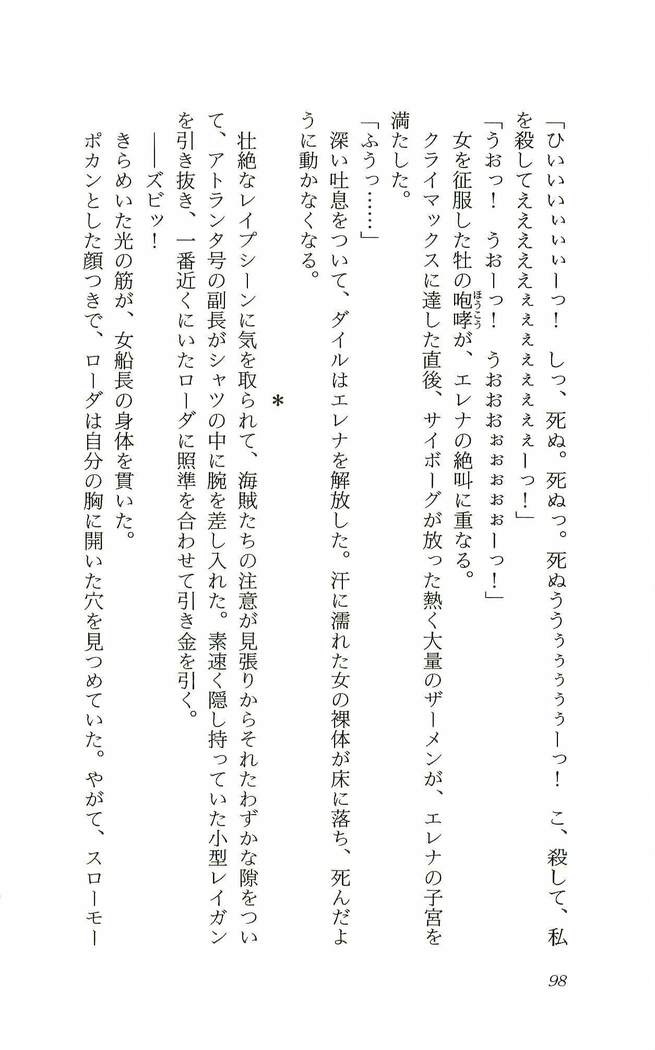 「ひいいいぃぃぃーっ！　しっ、死ぬ。死ぬっ。死ぬうううぅぅぅぅーっ！　こ、殺して、私
を殺してえええええぇぇぇぇぇぇぇーっ！」
「うおっ！　うおーっ！　うおおおぉぉぉぉぉーっ！」
女を征服した牡の咆哮ほうこうが、エレナの絶叫に重なる。
クライマックスに達した直後、サイボーグが放った熱く大量のザーメンが、エレナの子宮を
満たした。
「ふうっ……」
深い吐息をついて、ダイルはエレナを解放した。汗に濡れた女の裸体が床に落ち、死んだよ
うに動かなくなる。
＊
壮絶なレイプシーンに気を取られて、海賊たちの注意が見張りからそれたわずかな隙をつい
て、アトランタ号の副長がシャツの中に腕を差し入れた。素速く隠し持っていた小型レイガン
を引き抜き、一番近くにいたローダに照準を合わせて引き金を引く。
――ズビッ！
きらめいた光の筋が、女船長の身体を貫いた。
ポカンとした顔つきで、ローダは自分の胸に開いた穴を見つめていた。やがて、スローモー
98